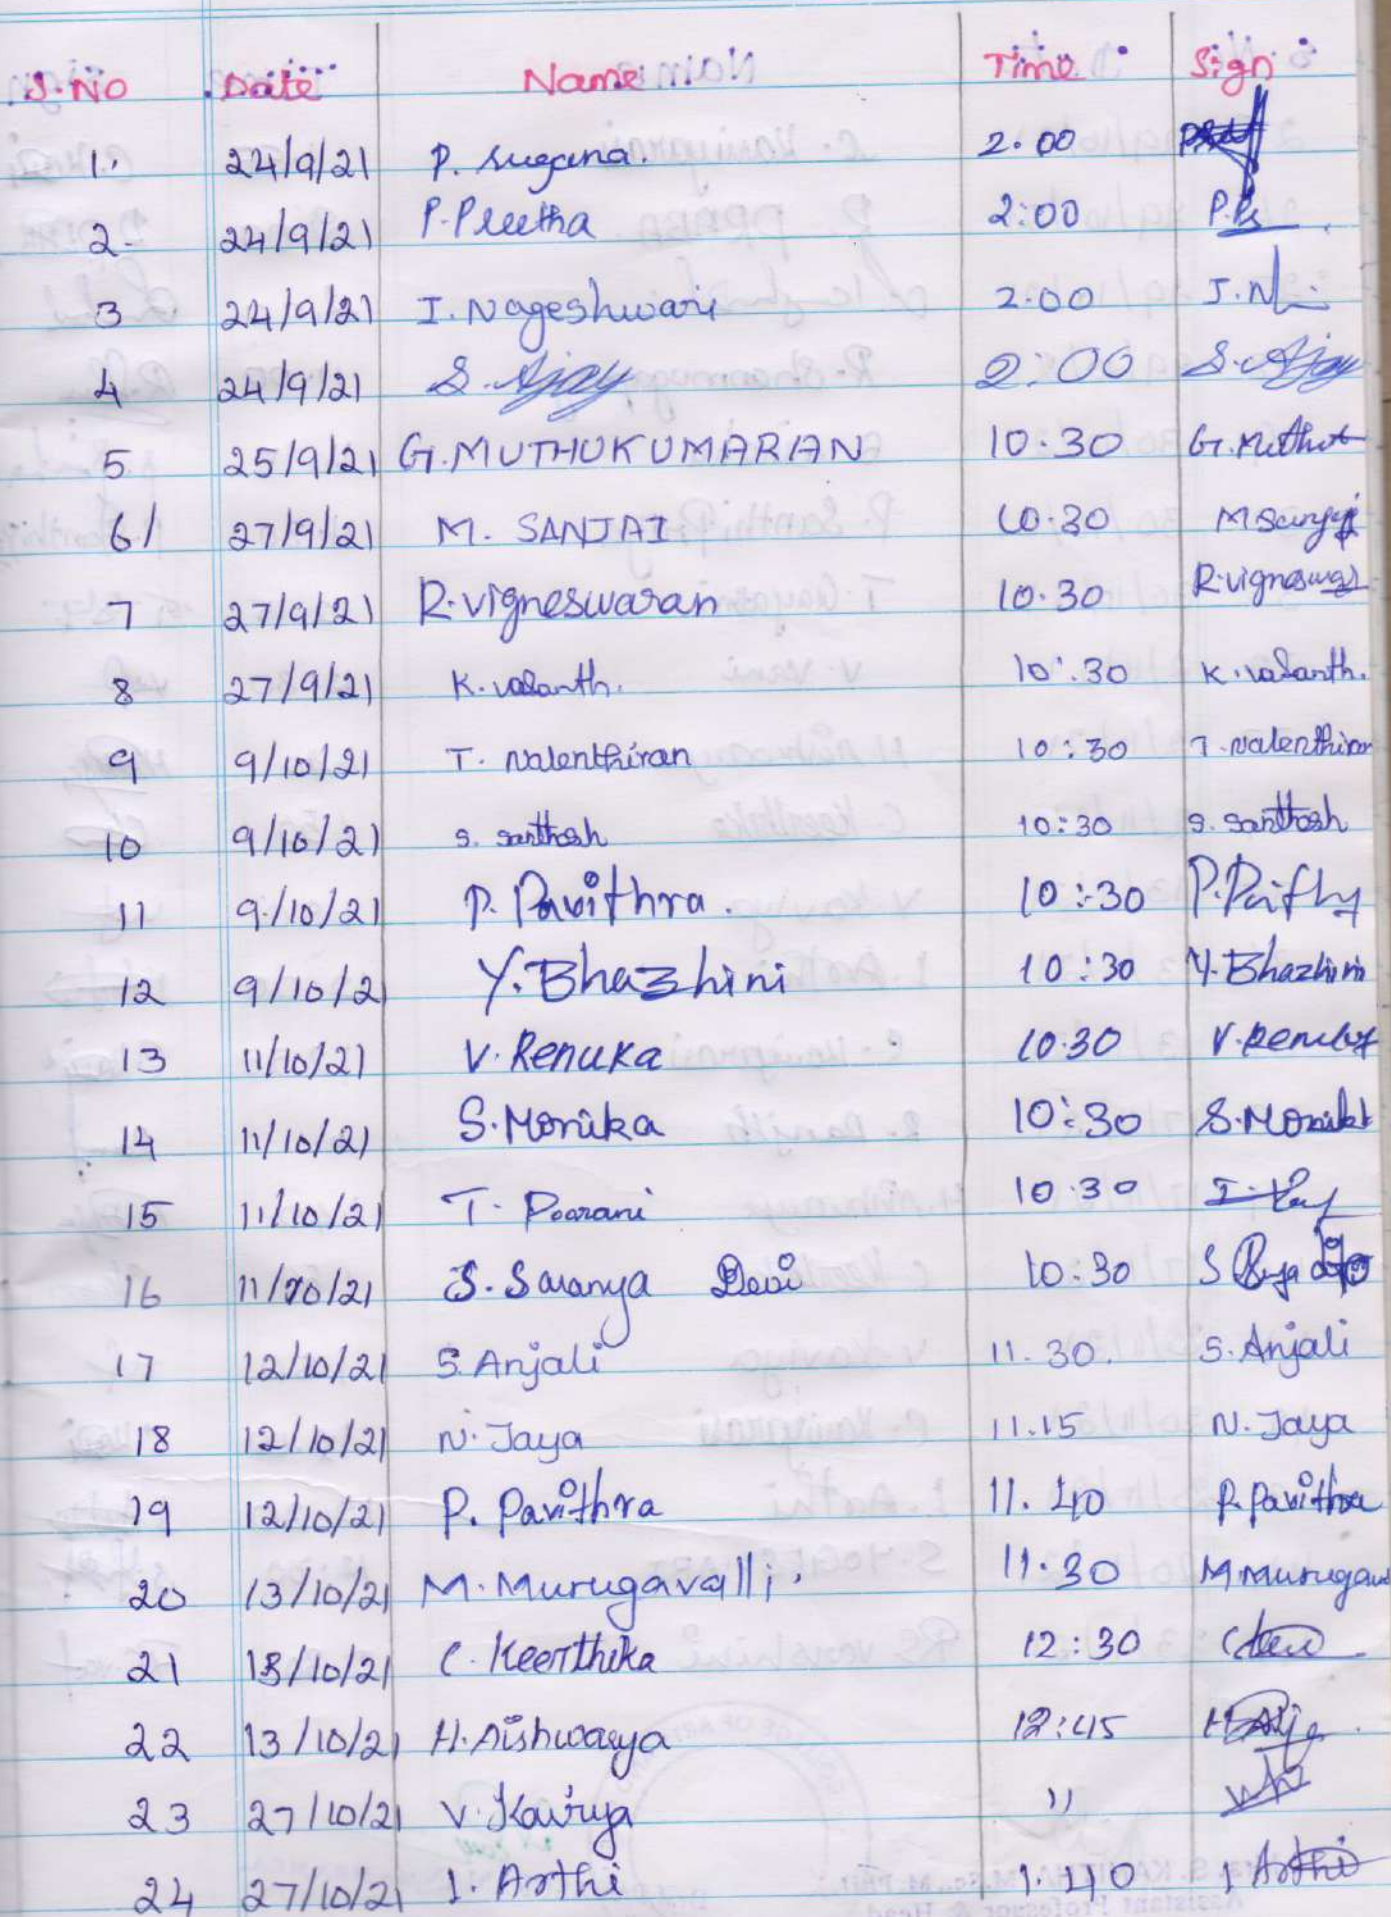 S.No Date Name Time Sign
1. 24/9/21 P. Sugana. 2.00
2- 24/9/21 P.Preetha 2:00 P.Pr
3 24/9/21 I. Nageshwari 2.00 I.N
4 24/9/21 S. Ajay 2:00 S. Ajay
5 25/9/21 G.MUTHUKUMARAN 10.30 G.Muthu
6/ 27/9/21 M. SANJAI 10.30 M Sanjai
7 27/9/21 R.Vigneswaran 10.30 R.Vigneswar
8 27/9/21 K.Vasanth. 10:30 K.Vasanth.
9 9/10/21 T. Nalenthiran 10:30 T.Nalenthiran
10 9/10/21 S. Santhosh 10:30 S. Santhosh
11 9/10/21 P. Pavithra. 10:30
12 9/10/2 Y.Bhazhini 10:30 Y.Bhazhini
13 11/10/21 V. Renuka 10.30 V.Renuka
14 11/10/21 S.Monika 10:30 S.Monika
15 11/10/21 T. Poorani 10.30
16 11/10/21 S. Saranya Devi 10:30 S
17 12/10/21 S.Anjali 11.30. S.Anjali
18 12/10/21 N.Jaya 11.15 N.Jaya
19 12/10/21 P. Pavithra 11.40 P.Pavithra
20 13/10/21 M.Murugavalli. 11.30 M.Murugav
21 13/10/21 C. Keerthika 12:30
22 13/10/21 H.Aishwarya 12:45
23 27/10/21 V.Kaviya "
24 27/10/21 I. Arthi 1.40 I Arthi